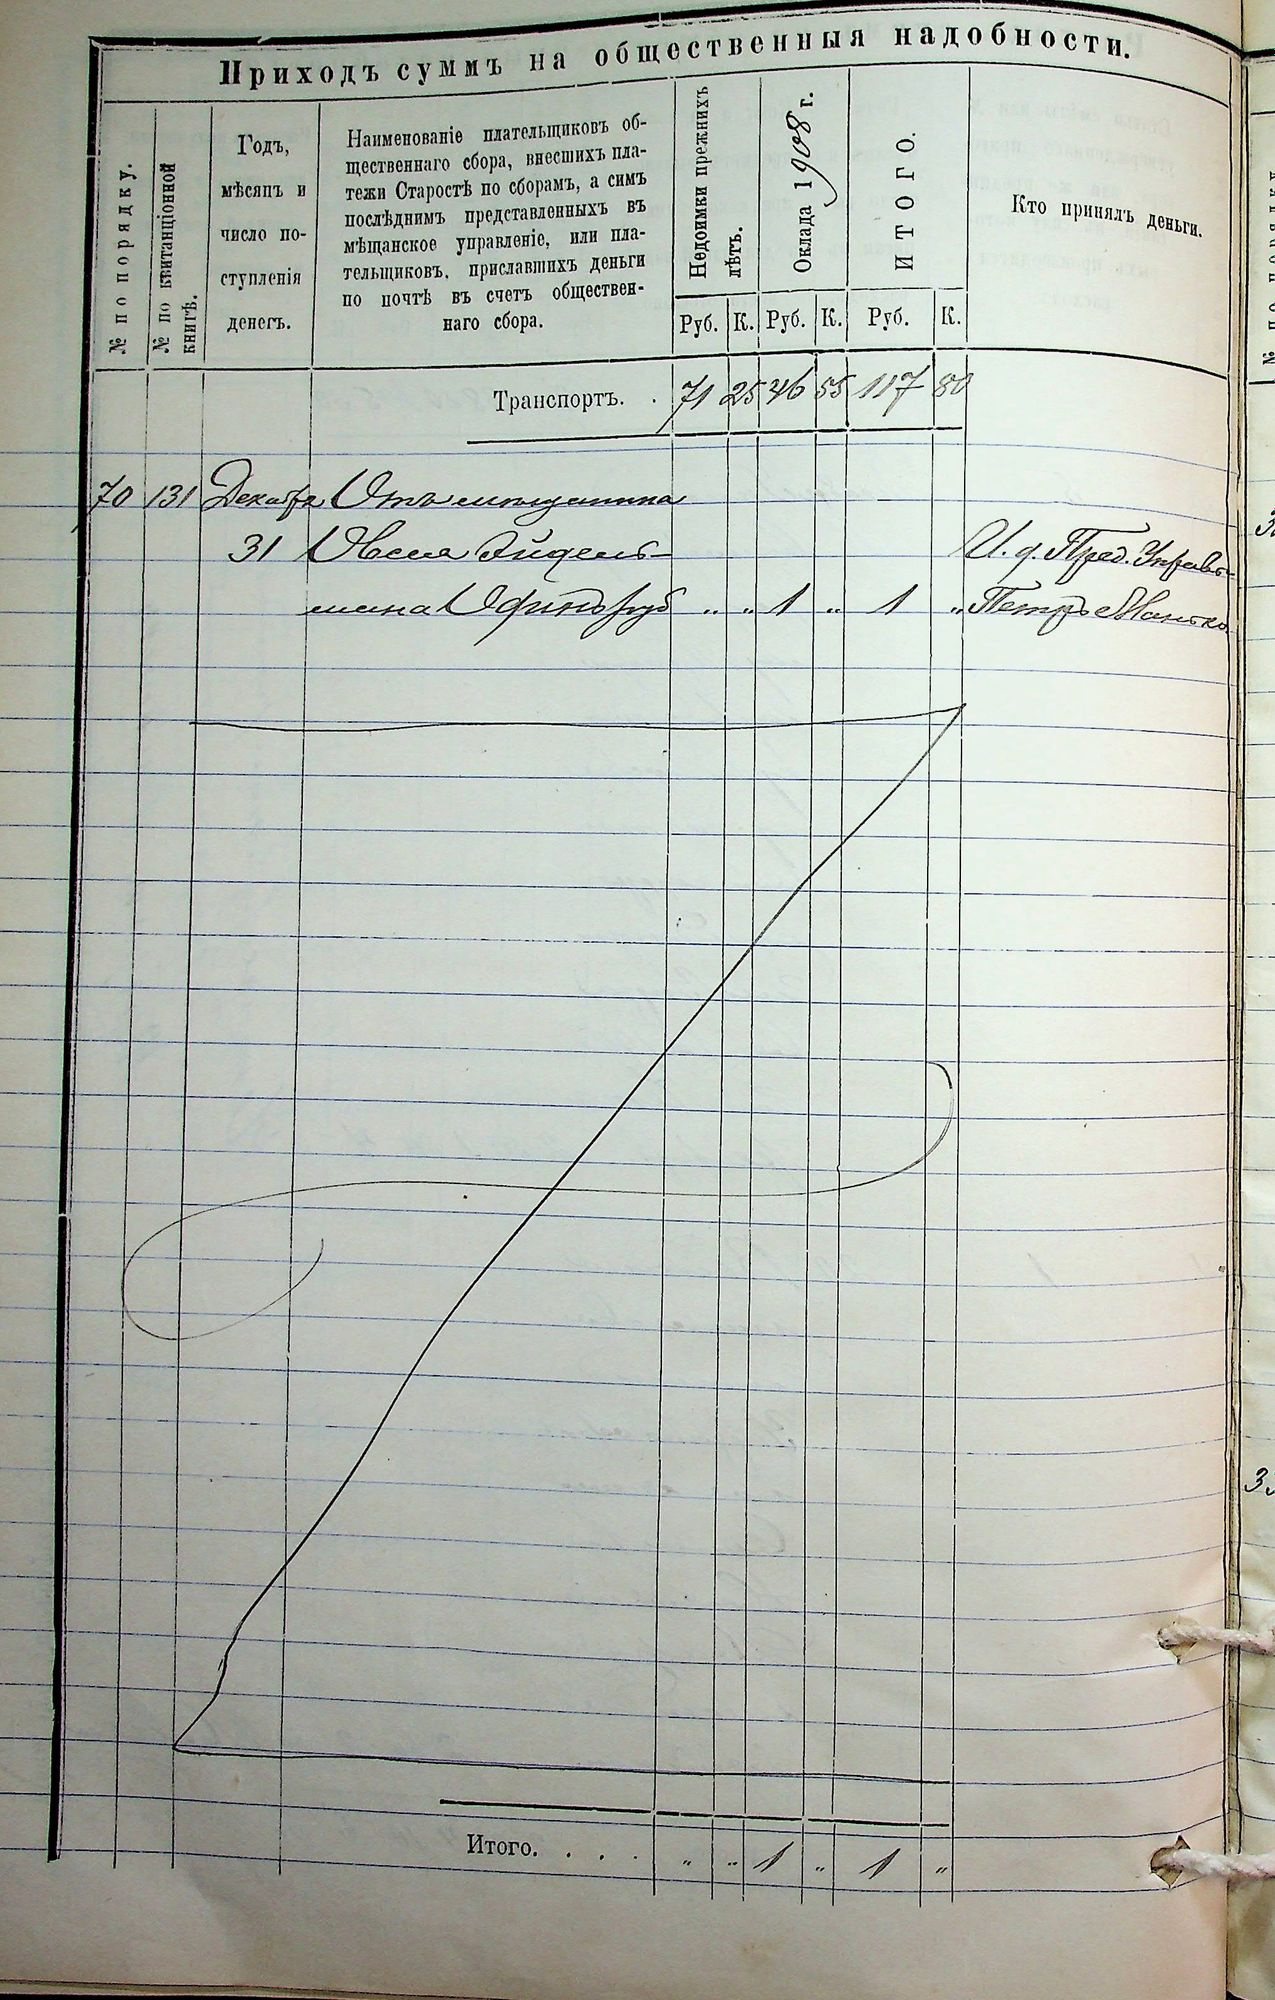 Приходъ суммъ на общественныя надобности.
№ по порядку.
№ по квитанціонной
книгѣ.
Годъ,
мѣсяцъ и
число по-
ступленія
денегъ.
Наименованіе плательщиковъ об-
щественнаго сбора, внесшихъ пла-
тежи Старостѣ по сборамъ, а симъ
послѣднимъ представленныхъ въ
мѣщанское управленіе, или пла-
тельщиковъ, приславшихъ деньги
по почтѣ въ счетъ обществен-
наго сбора.
Недоимки прежнихъ
лѣтъ.
Оклада 1908 г.
ИТОГО.
Кто принялъ деньги.
Руб. К. Руб. К. Руб. К.
Транспортъ. . 71 25 46 55 117 80
70 131 Декабря Отъ мѣщанина
31 Овсея Эйдель-
мана Одинъ руб „ „ 1 „ 1 „
И. д. Пред. Управы
Петръ
Итого. . . . „ „ 1 „ 1 „
3
33